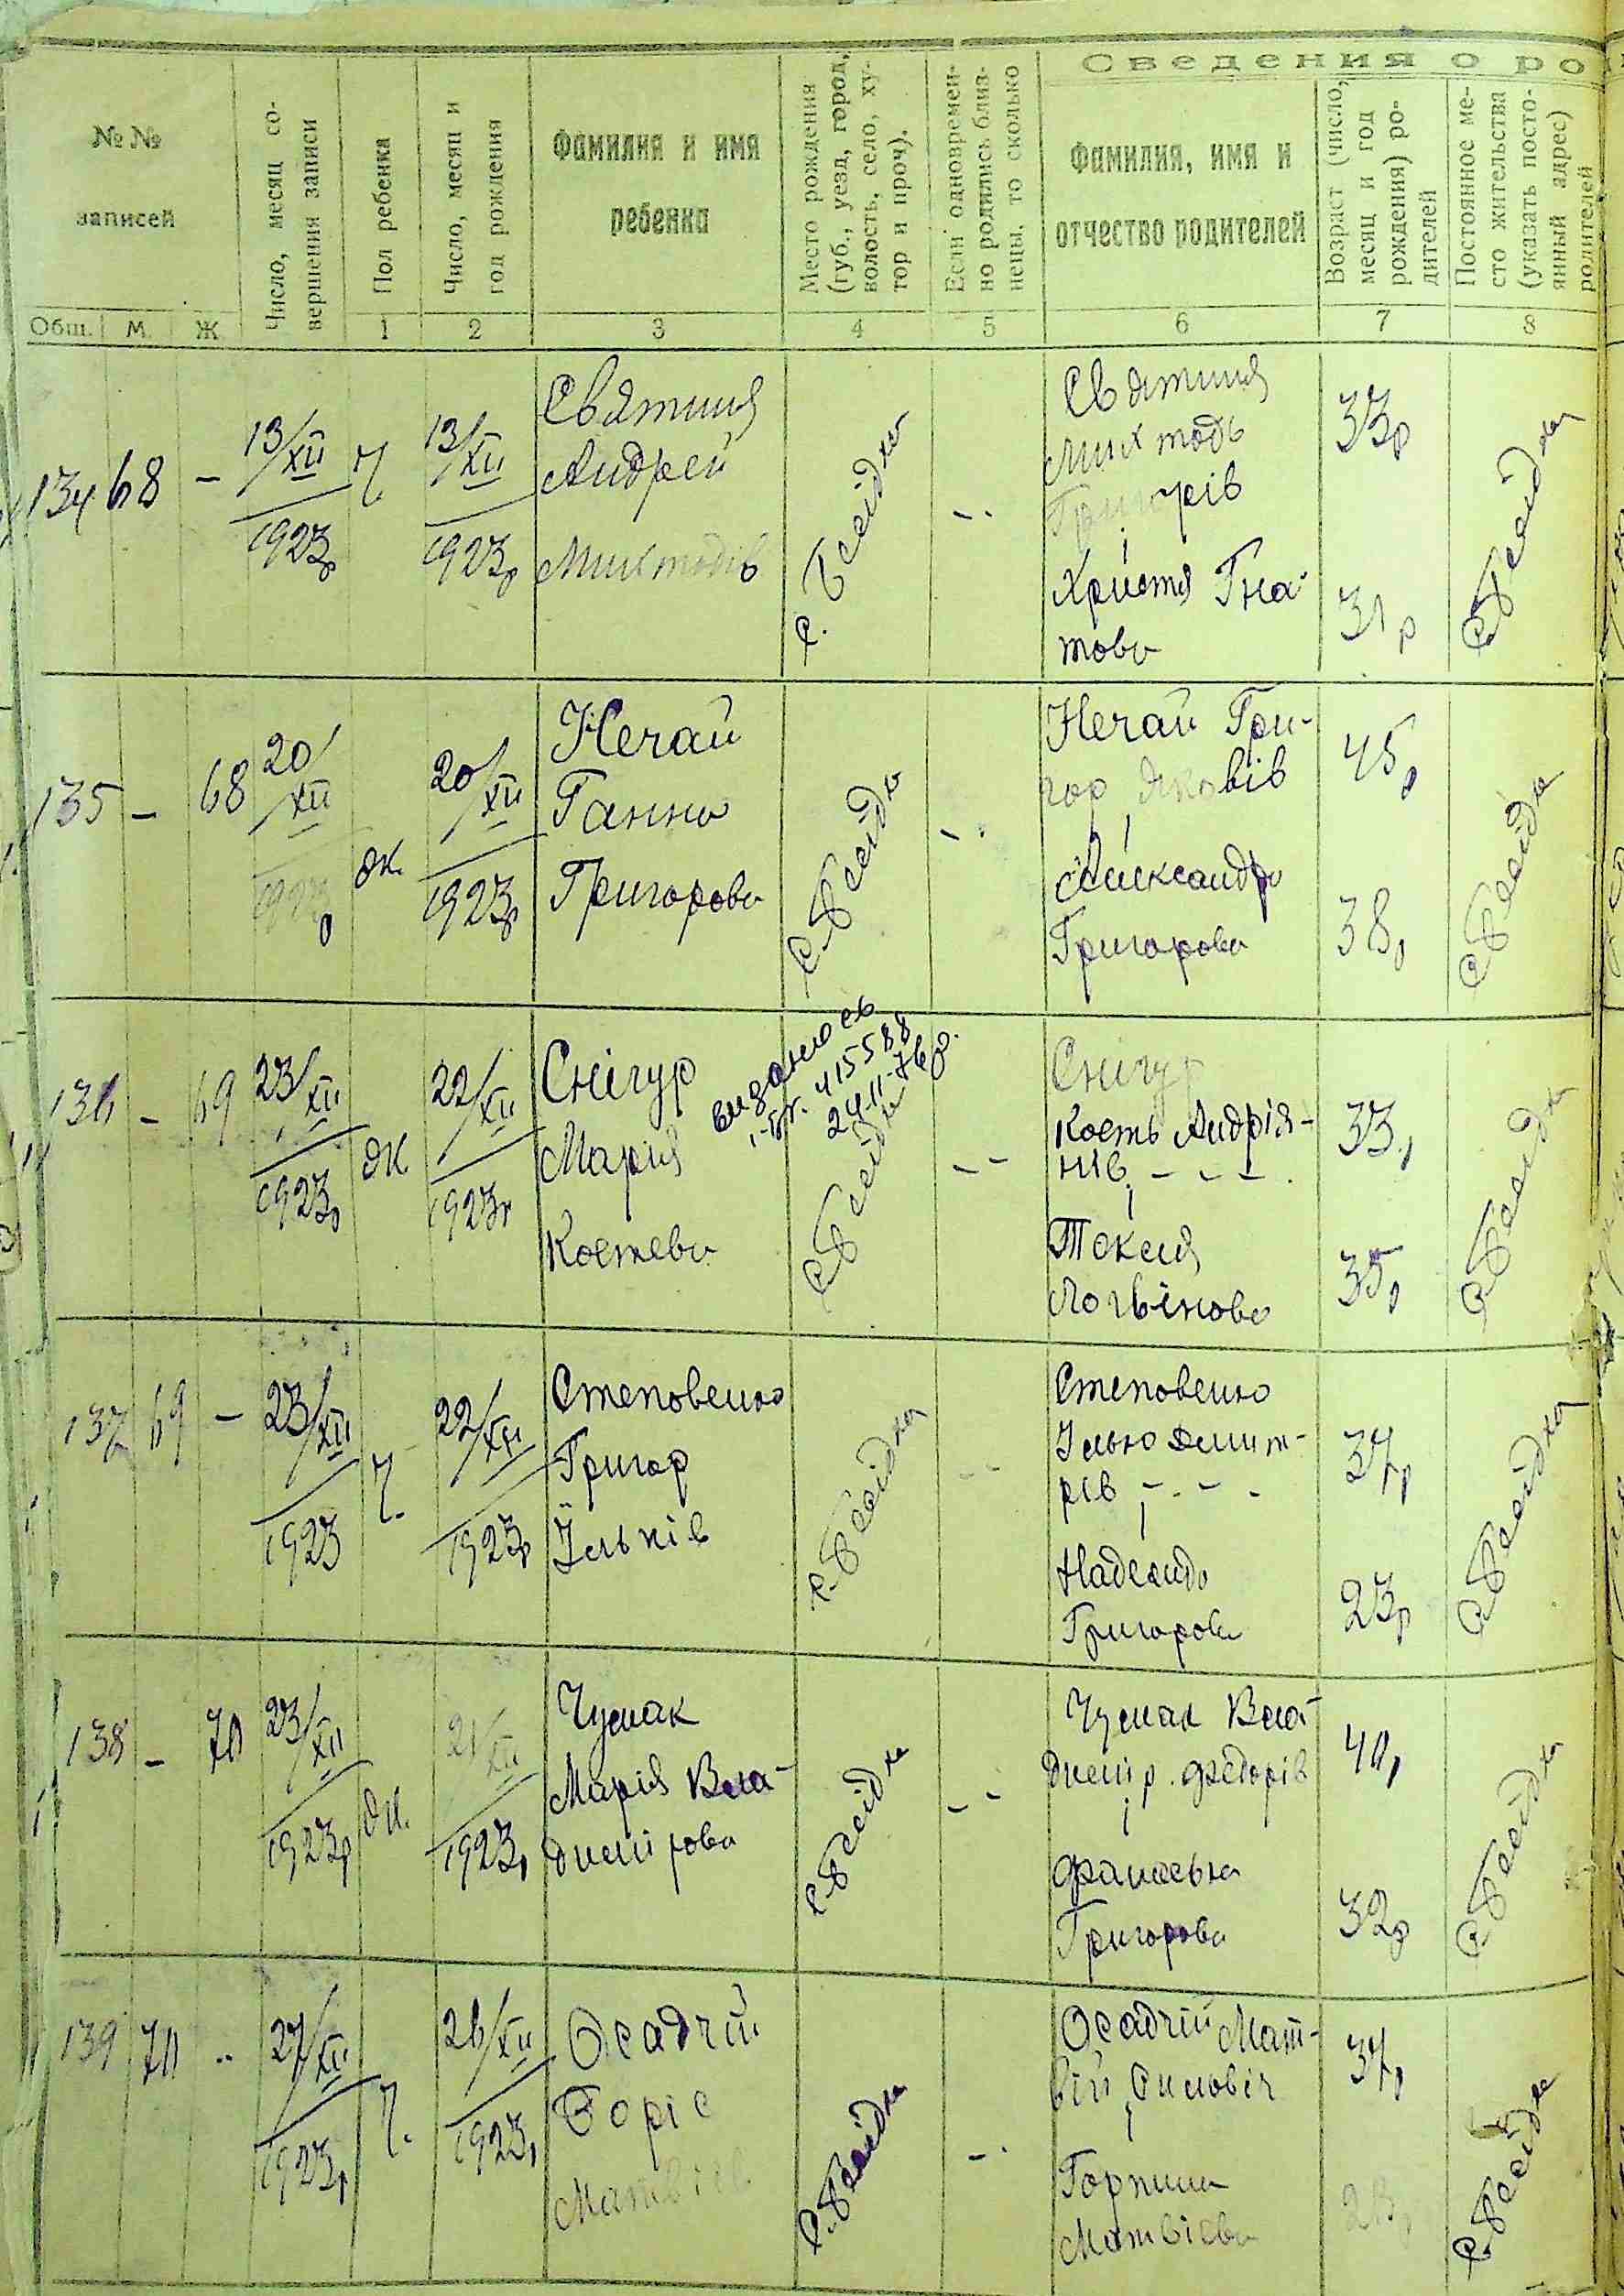 Сведения о ро
№ №
записей
Число, месяц со-
вершения записи
Пол ребенка
Число, месяц и
год рождения
Фамилия и имя
ребенка
Место рождения
(губ., уезд, город,
волость, село, ху-
тор и проч.).
Если одновремен-
но родились близ-
нецы, то сколько
Фамилия, имя и
отчество родителей
Возраст (число,
месяц и год
рождения) ро-
дителей
Постоянное ме-
сто жительства
(указать посто-
янный адрес)
родителей
Общ. М. Ж 1 2 3 4 5 6 7 8
134 68 - 13/XII 1923р Ч. 13/XII 1923р
Святиня
Андрей
с. Бсідка
Святиня
Григорів
і
Христя Гна-
това
33р
31р
с. Бсідка
135 - 68 20/XII 1923р ж. 20/XII 1923р
Нечай
Ганна
Григорова
с. Бсідка
Нечай Гри-
гор Яковів
і
Александра
Григорова
45р
38р
с. Бсідка
136 - 69 23/XII 1923р ж 22/XII 1923р
Снігур
Марія
Костева
видано св
415588
24-11-76р.
с. Бсідка
Снігур
Кость Андрія-
нів - - -
і
Текля
Логвінова
33р
35р
с. Бсідка
137 69 - 23/XII 1923 Ч. 22/XII 1923р
Степовенко
Григор
Ільків
с. Бсідка
Степовенко
Ілько Дмит-
рів - . - .
і
Надежда
Григорова
37р
23р
с. Бсідка
138 - 70 23/XII 1923р ж. 21/XII 1923р
Чумак
Марія Вла-
димірова
с. Бсідка
Чумак Вла-
димір Федорів
і
Франаська
Григорова
40р
32р
с. Бсідка
139 70 - 27/XII 1923р Ч. 26/XII 1923р
Осадчій
Боріс
с. Бсідка
Осадчій Мат-
вій
і
Горпина
Матвієва
37р
с. Бсідка